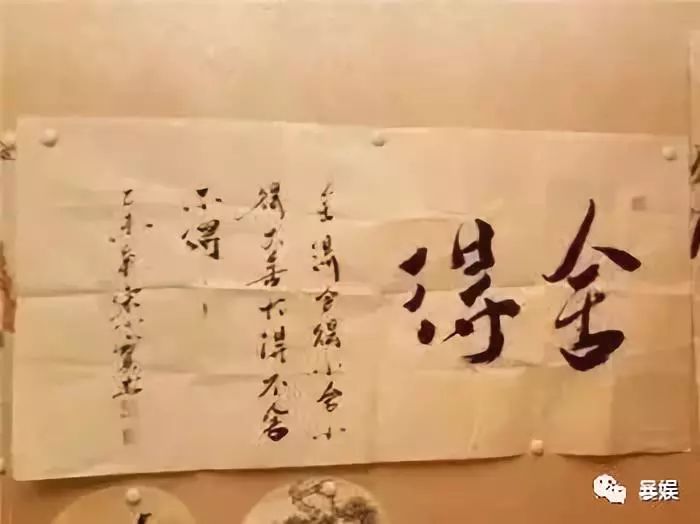 舍得
舍得舍得小舍小
得大舍大得不舍
不得
乙未年宋小寶
暴娱